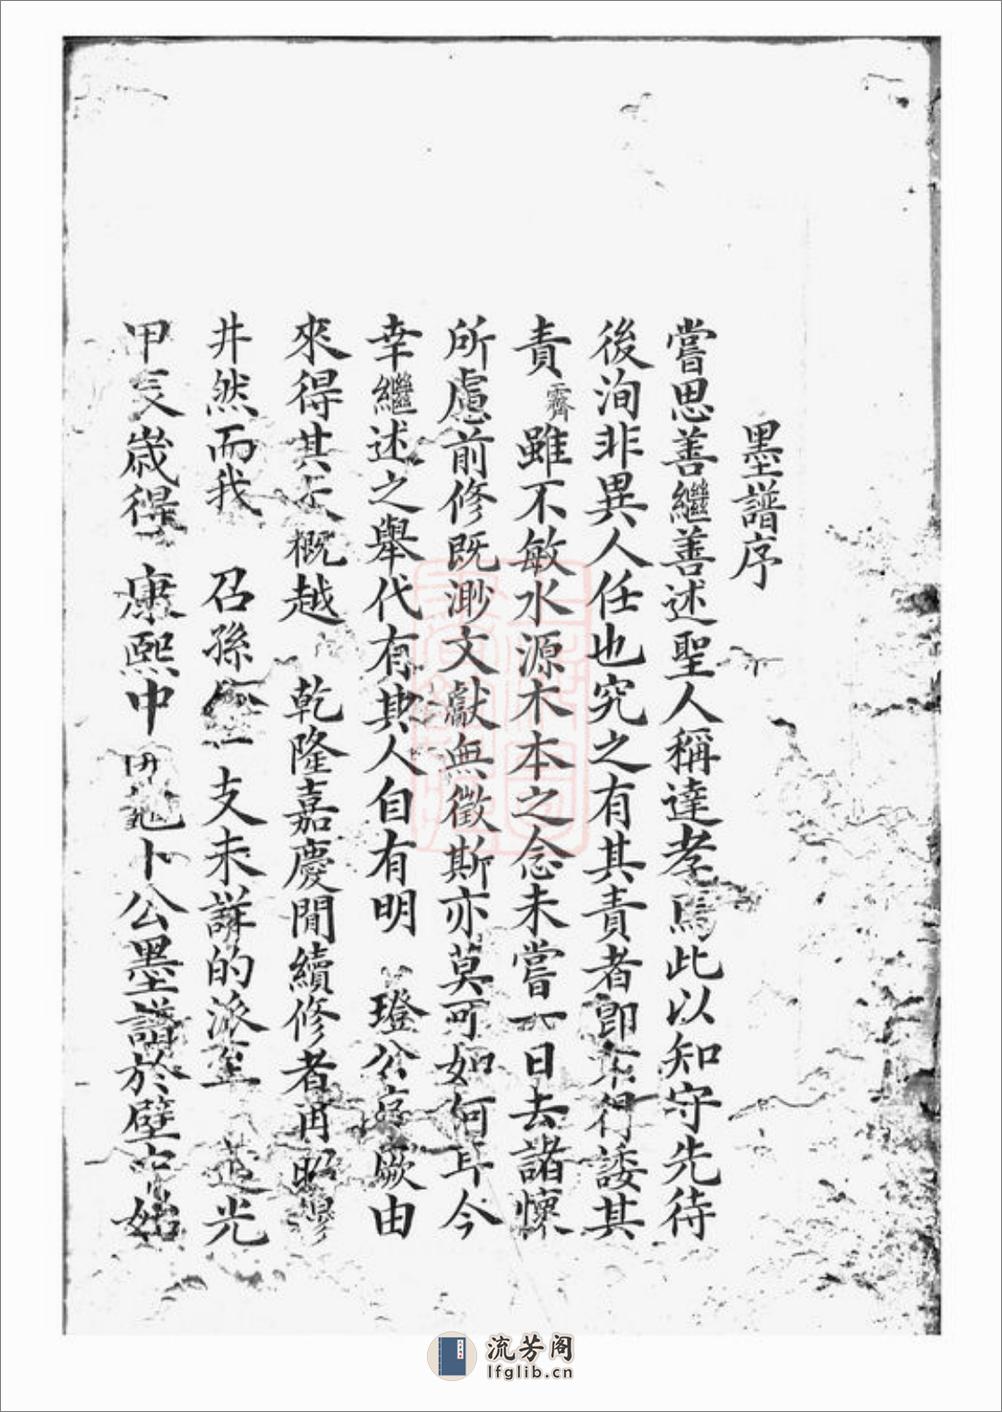 墨譜序
嘗思善繼善述聖人稱達孝焉此以知守先待
後洵非異人任也究之有其責者即不得諉其
責霽雖不敏水源木本之念未嘗一日去諸懷
所慮前修既渺文獻無徵斯亦莫可如何耳今
幸繼述之舉代有其人自有明 璒公序厥由
來得其大概越 乾隆嘉慶間續修者再昭穆
井然而我 召孫公一支未詳的派至 道光
甲辰歲得 康熙中 卜公墨譜於壁中始
流芳阁
lfglib.cn